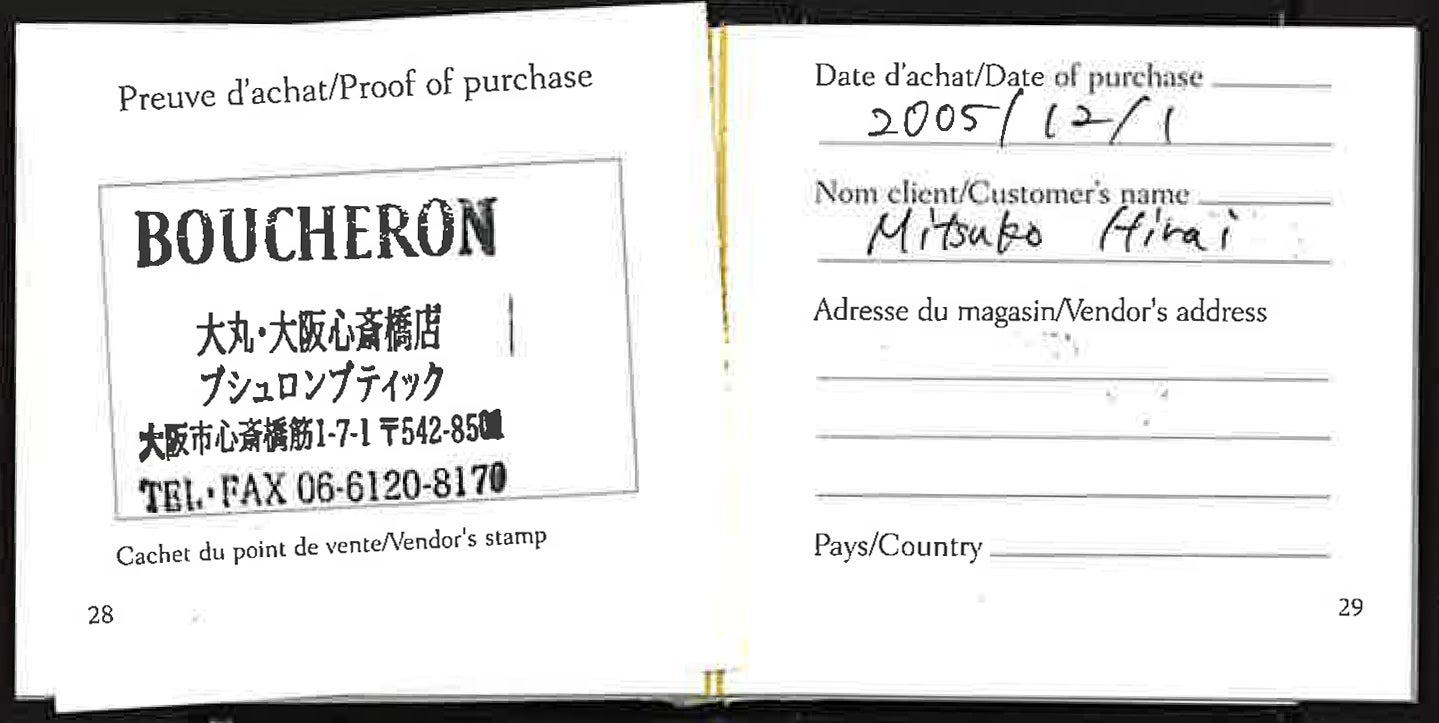 Preuve d'achat/Proof of purchase
BOUCHERON
大丸・大阪心斎橋店
ブシュロンブティック
大阪市心斎橋筋1-7-1 〒542-8501
TEL・FAX 06-6120-8170
Cachet du point de vente/Vendor's stamp
28
Date d'achat/Date of purchase
2005/12/1
Nom client/Customer's name
Mitsuko Hirai
Adresse du magasin/Vendor's address
Pays/Country
29